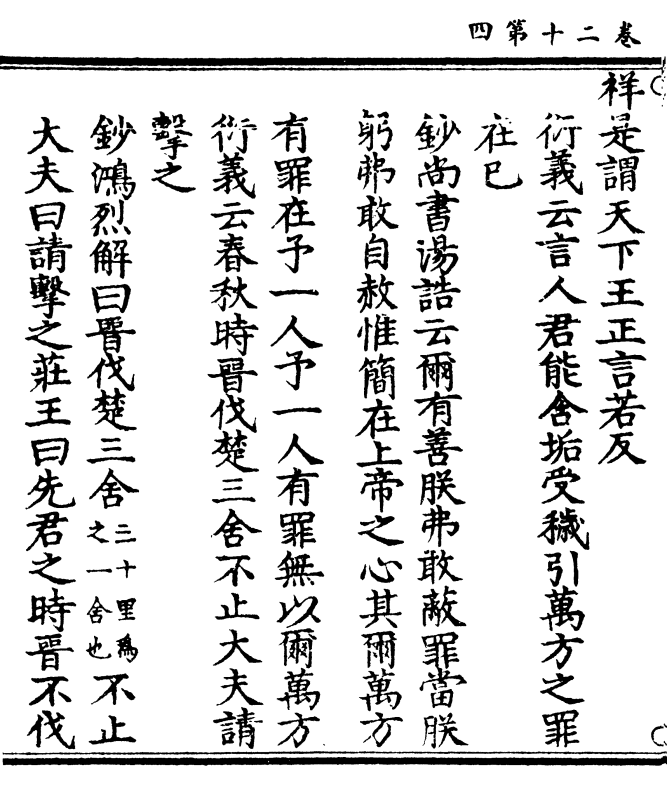 卷二十第四
祥是謂天下王正言若反
衍義云言人君能含垢受穢引萬方之罪
在已
鈔尚書湯誥云爾有善朕弗敢蔽罪當朕
躬弗敢自赦惟簡在上帝之心其爾萬方
有罪在予一人予一人有罪無以爾萬方
衍義云春秋時晉伐楚三舍不止大夫請
擊之
鈔鴻烈解曰晉伐楚三舍三十里為之一舍也不止
大夫曰請擊之莊王曰先君之時晉不伐